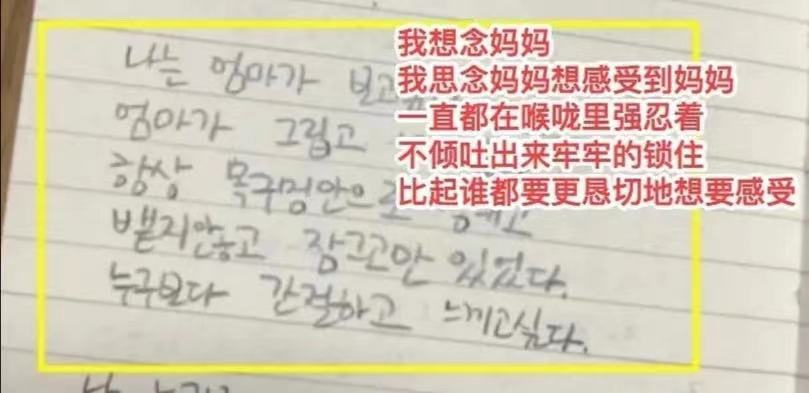 我想念妈妈
我思念妈妈想感受到妈妈
一直都在喉咙里强忍着
不倾吐出来牢牢的锁住
比起谁都要更恳切地想要感受
나는 엄마가 보고
엄마가 그립고
항상 목구멍안으로
뱉지안놓고 잠그고만 있었다.
누구보다 간절하고 느끼고싶다.